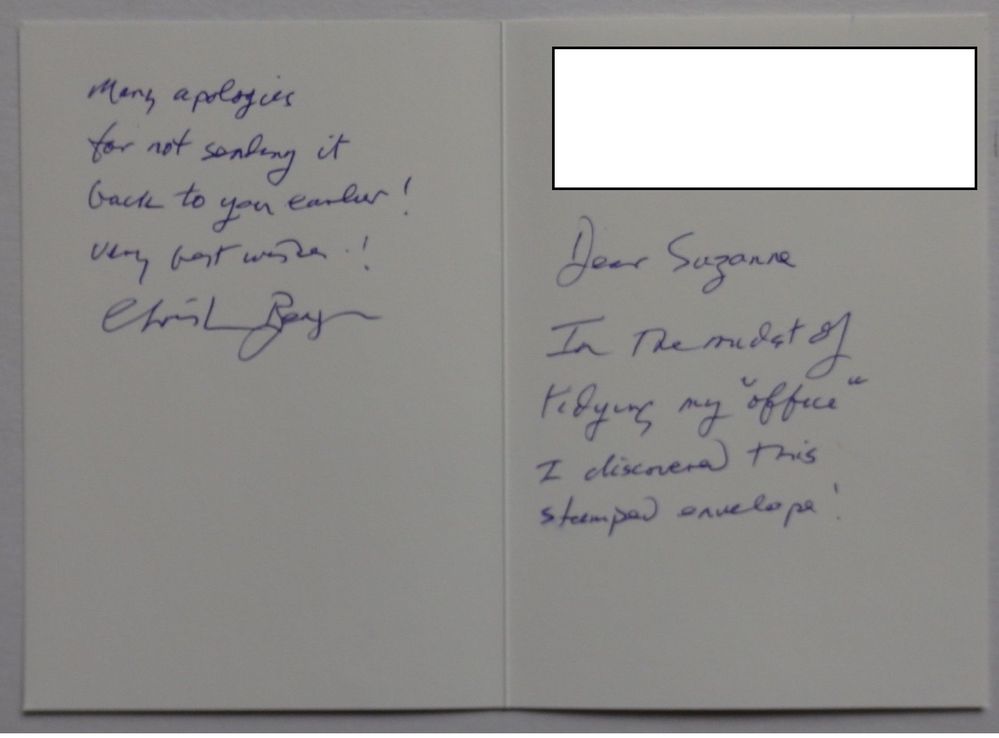 Dear Suzanne
In The midst of
tidying my "office"
I discovered this
stamped envelope!
Many apologies
for not sending it
back to you earlier!
Very best wishes!